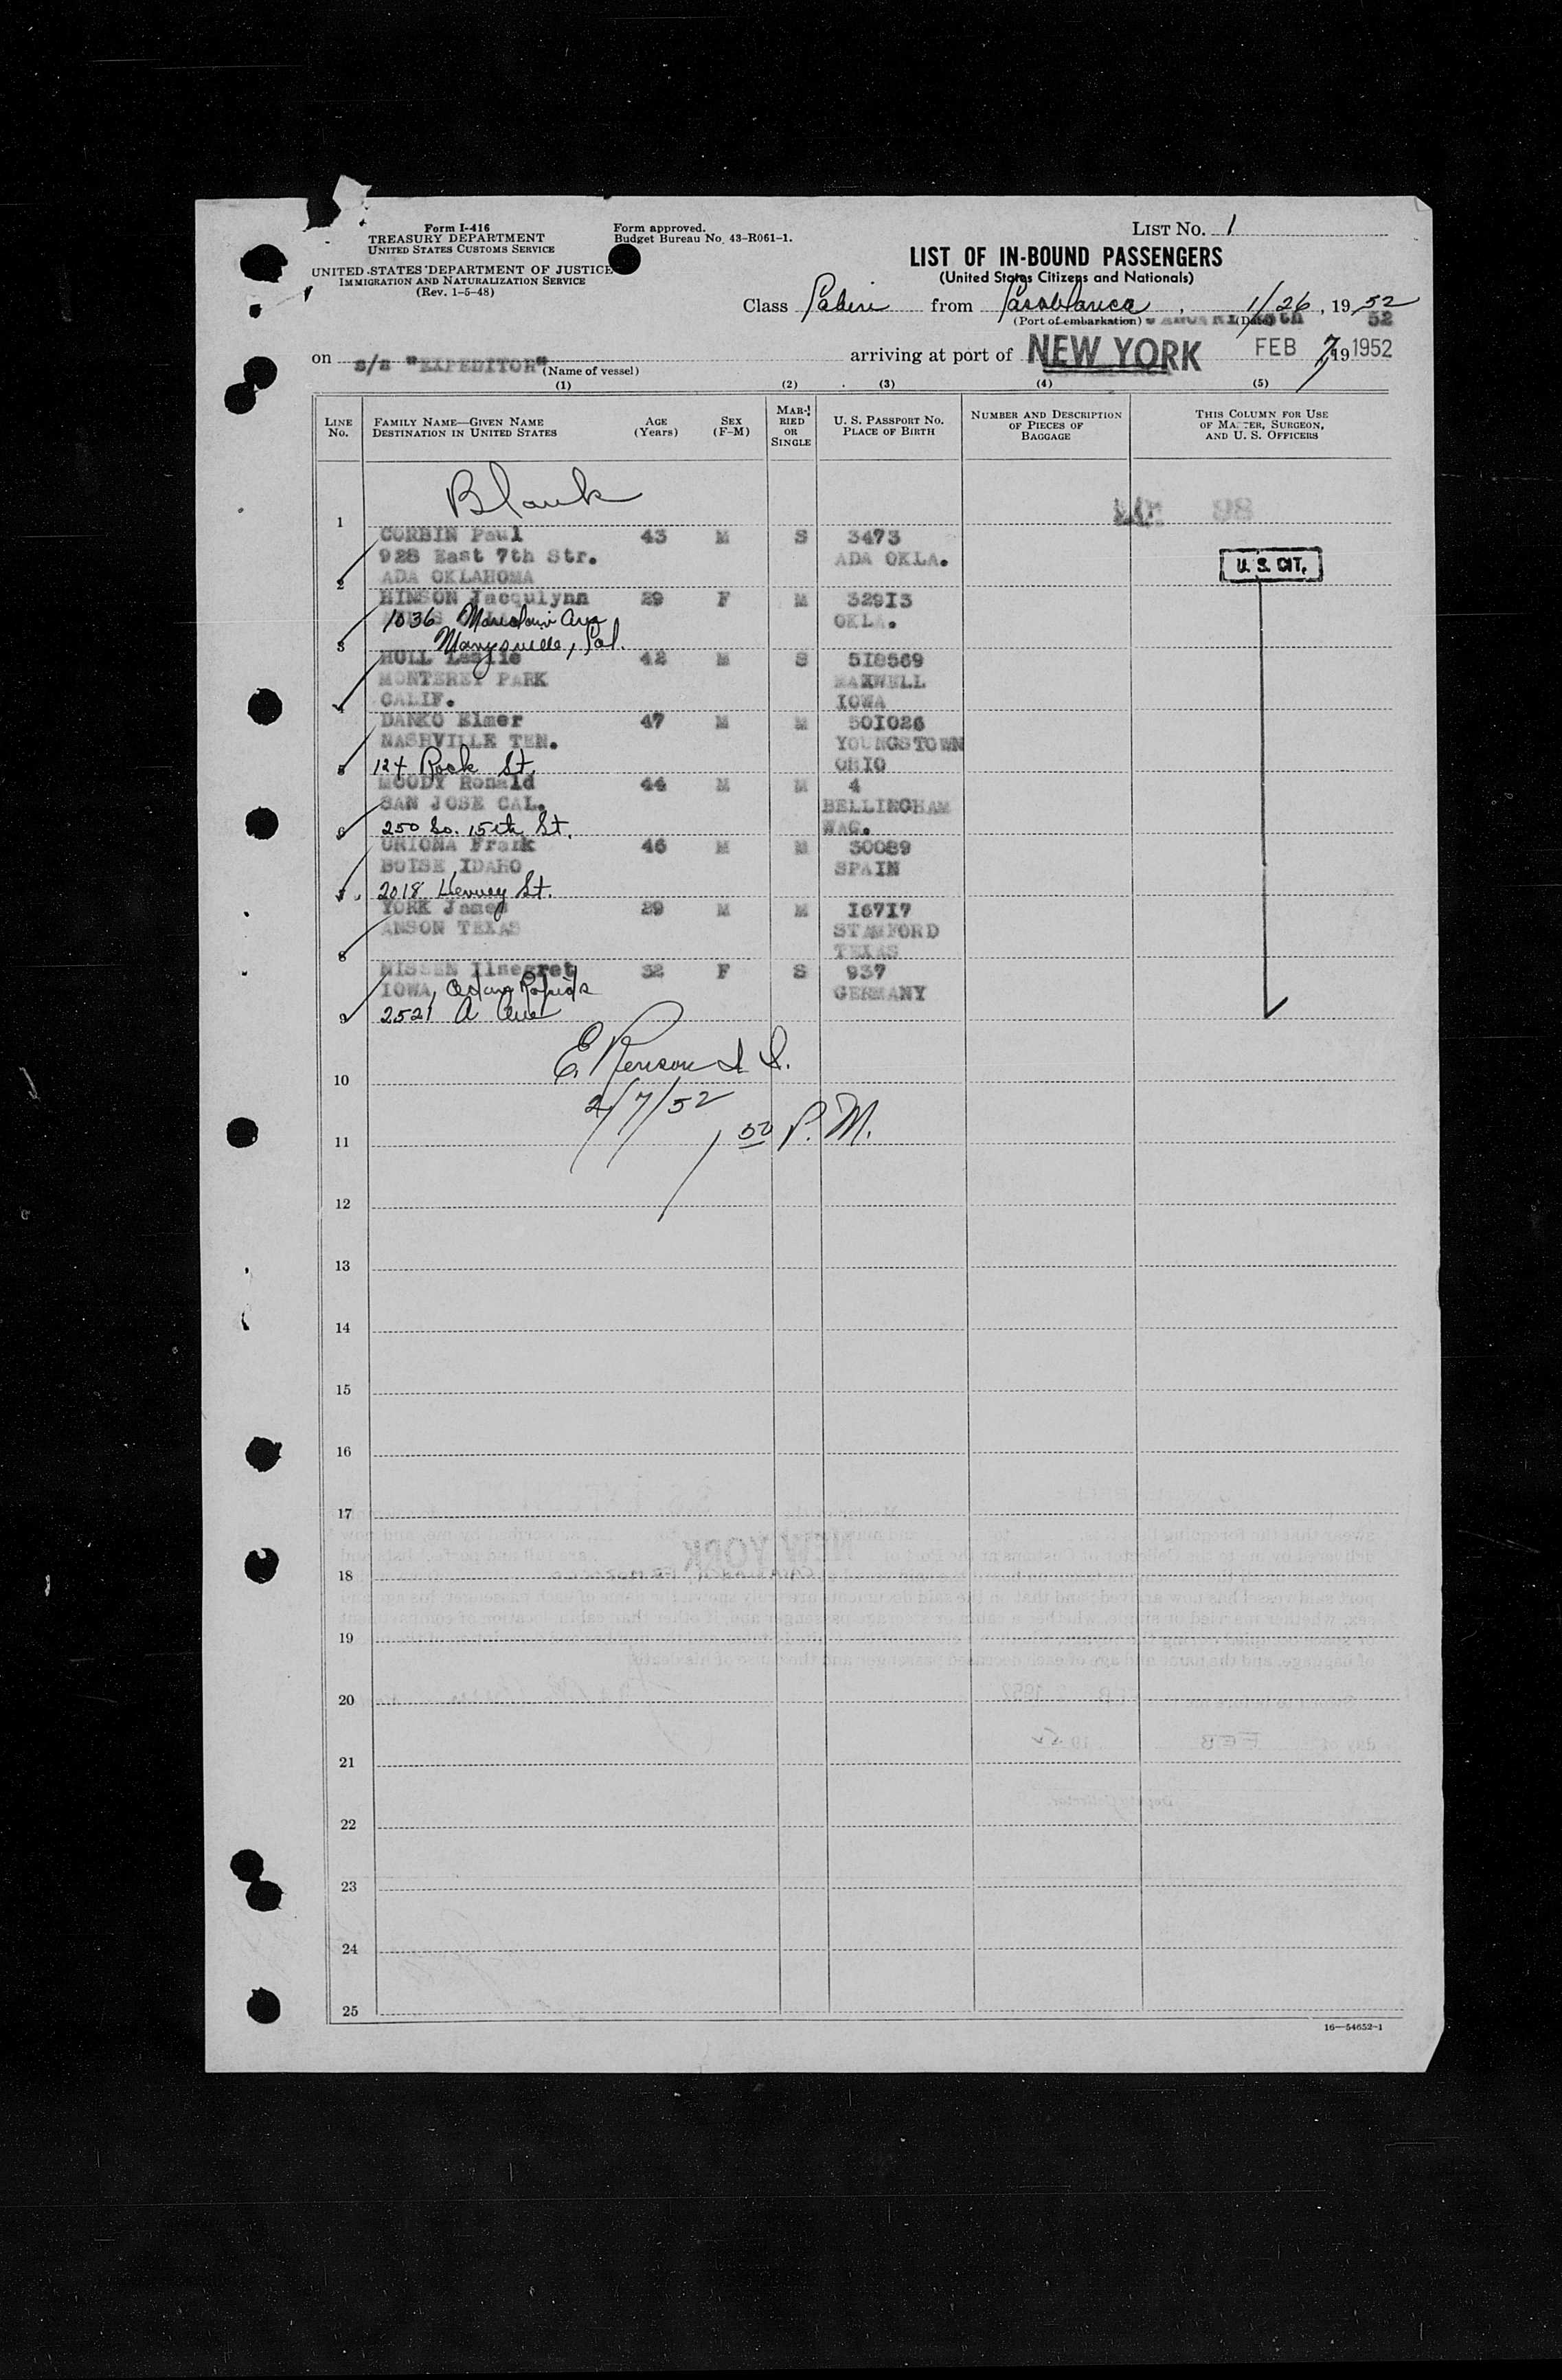 Form I-416
TREASURY DEPARTMENT
UNITED STATES CUSTOMS SERVICE
UNITED STATES DEPARTMENT OF JUSTICE
IMMIGRATION AND NATURALIZATION SERVICE
(Rev. 1-5-48)
Form approved.
Budget Bureau No. 43-R061-1.
LIST NO. 1
LIST OF IN-BOUND PASSENGERS
(United States Citizens and Nationals)
Class Cabin from Casablanca, 1/26, 1952
(Port of embarkation) (Date) 52
on s/s "EXPEDITOR" arriving at port of NEW YORK FEB 7 19 1952
(Name of vessel)
(1) (2) (3) (4) (5)
LINE NO. FAMILY NAME—GIVEN NAME DESTINATION IN UNITED STATES AGE (Years) SEX (F-M) MARRIED OR SINGLE U. S. PASSPORT NO. PLACE OF BIRTH NUMBER AND DESCRIPTION OF PIECES OF BAGGAGE THIS COLUMN FOR USE OF MASTER, SURGEON, AND U. S. OFFICERS
1 Blank
CORBIN Paul 43 M S 3473
928 East 7th Str. ADA OKLA. U. S. CIT.
2 ADA OKLAHOMA
HINSON Jacqulynn 29 F M 32913
1036 Ave OKLA.
3 Marysville, Cal.
HULL Leslie 42 M S 518569
MONTEREY PARK MAXWELL
4 CALIF. IOWA
DANKO Elmer 47 M M 501026
NASHVILLE TEN. YOUNGSTOWN
5 124 Rock St. OHIO
MOODY Ronald 44 M M 4
SAN JOSE CAL. BELLINGHAM
6 250 So. 15th St. WAS.
URIONA Frank 46 M M 30089
BOISE IDAHO SPAIN
7 2018 St.
YORK James 29 M M 16717
ANSON TEXAS STAMFORD
8 TEXAS
NISSEN Ilsegret 32 F S 937
IOWA, Cedar Rapids GERMANY
9 2521 A Ave
E.
10
2/7/52
1 50 P.M.
11
12
13
14
15
16
17
18
19
20
21
22
23
24
25
16—54652-1